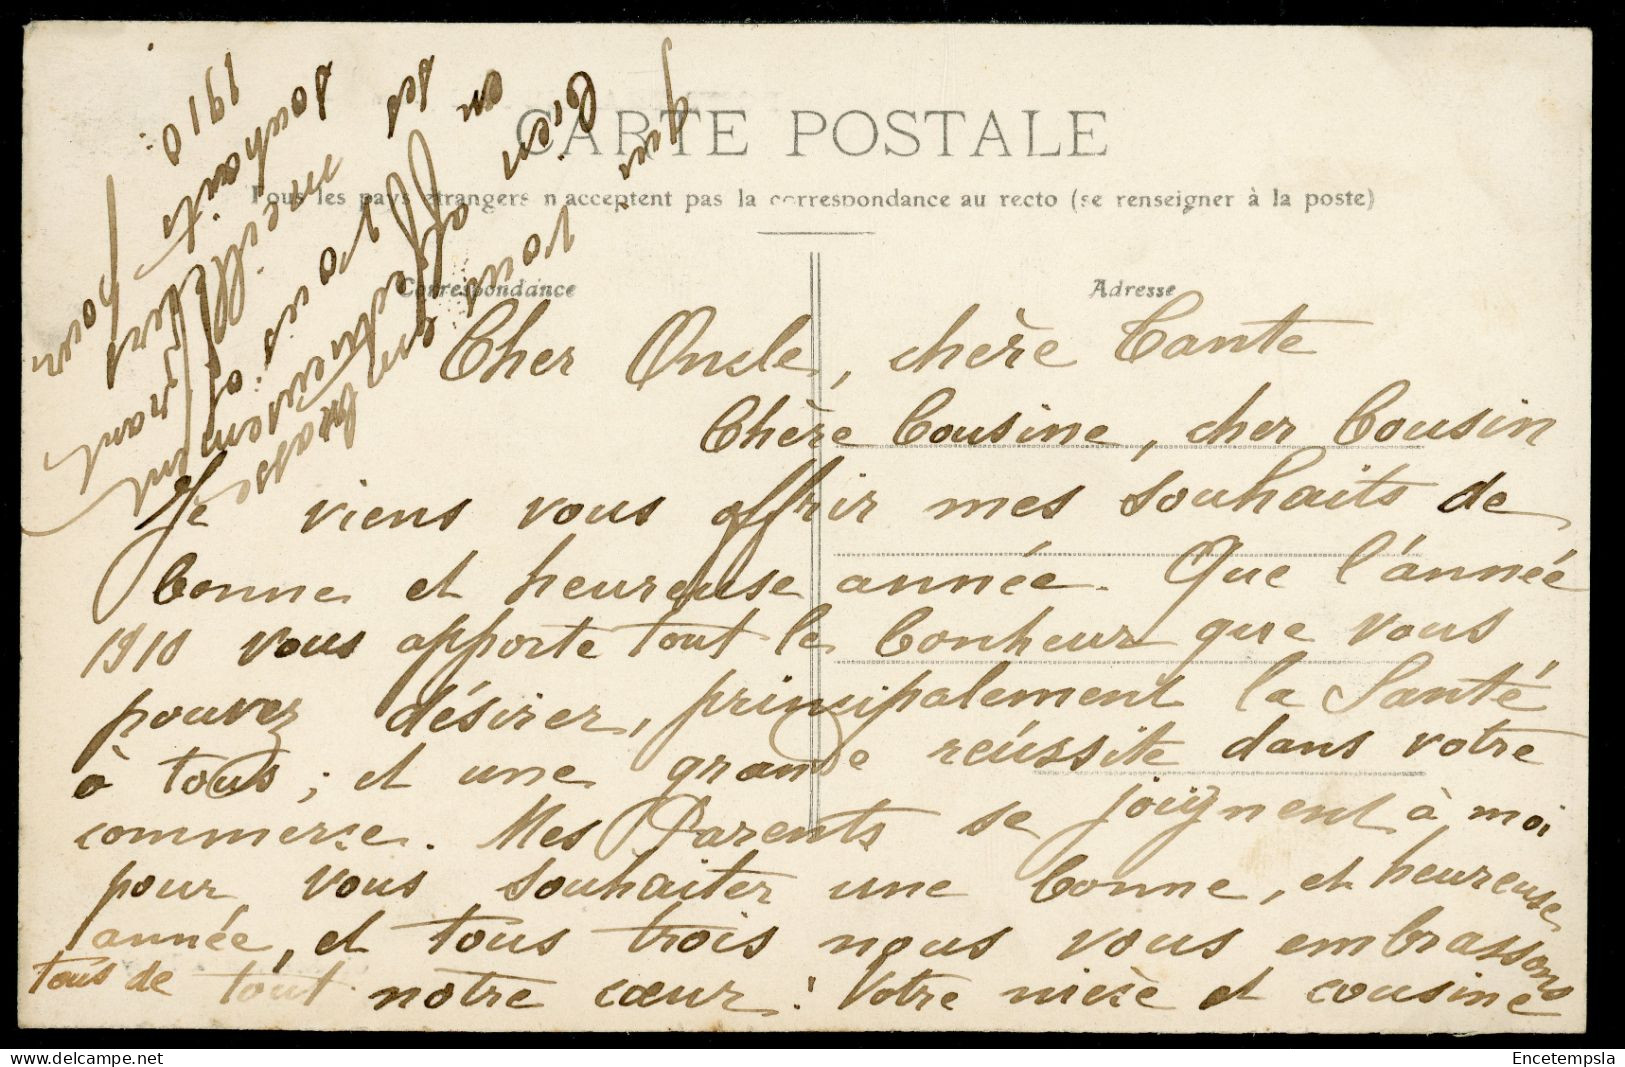 CARTE POSTALE
Tous les pays étrangers n'acceptent pas la correspondance au recto (se renseigner à la poste)
Correspondance
Adresse
Cher Oncle, chère Tante
Chère Cousine, cher Cousin
Je viens vous offrir mes souhaits de
bonne et heureuse année. Que l'année
1910 vous apporte tout le bonheur que vous
pouvez désirer, principalement la Santé
à tous ; et une grande réussite dans votre
commerce. Mes Parents se joignent à moi
pour vous souhaiter une bonne, et heureuse
année, et tous trois nous vous embrassons
tous de tout notre cœur : Votre nièce et cousine
qui vous embrasse
bien affectueusement
en vous offrant
ses meilleurs
souhaits pour
1910 :